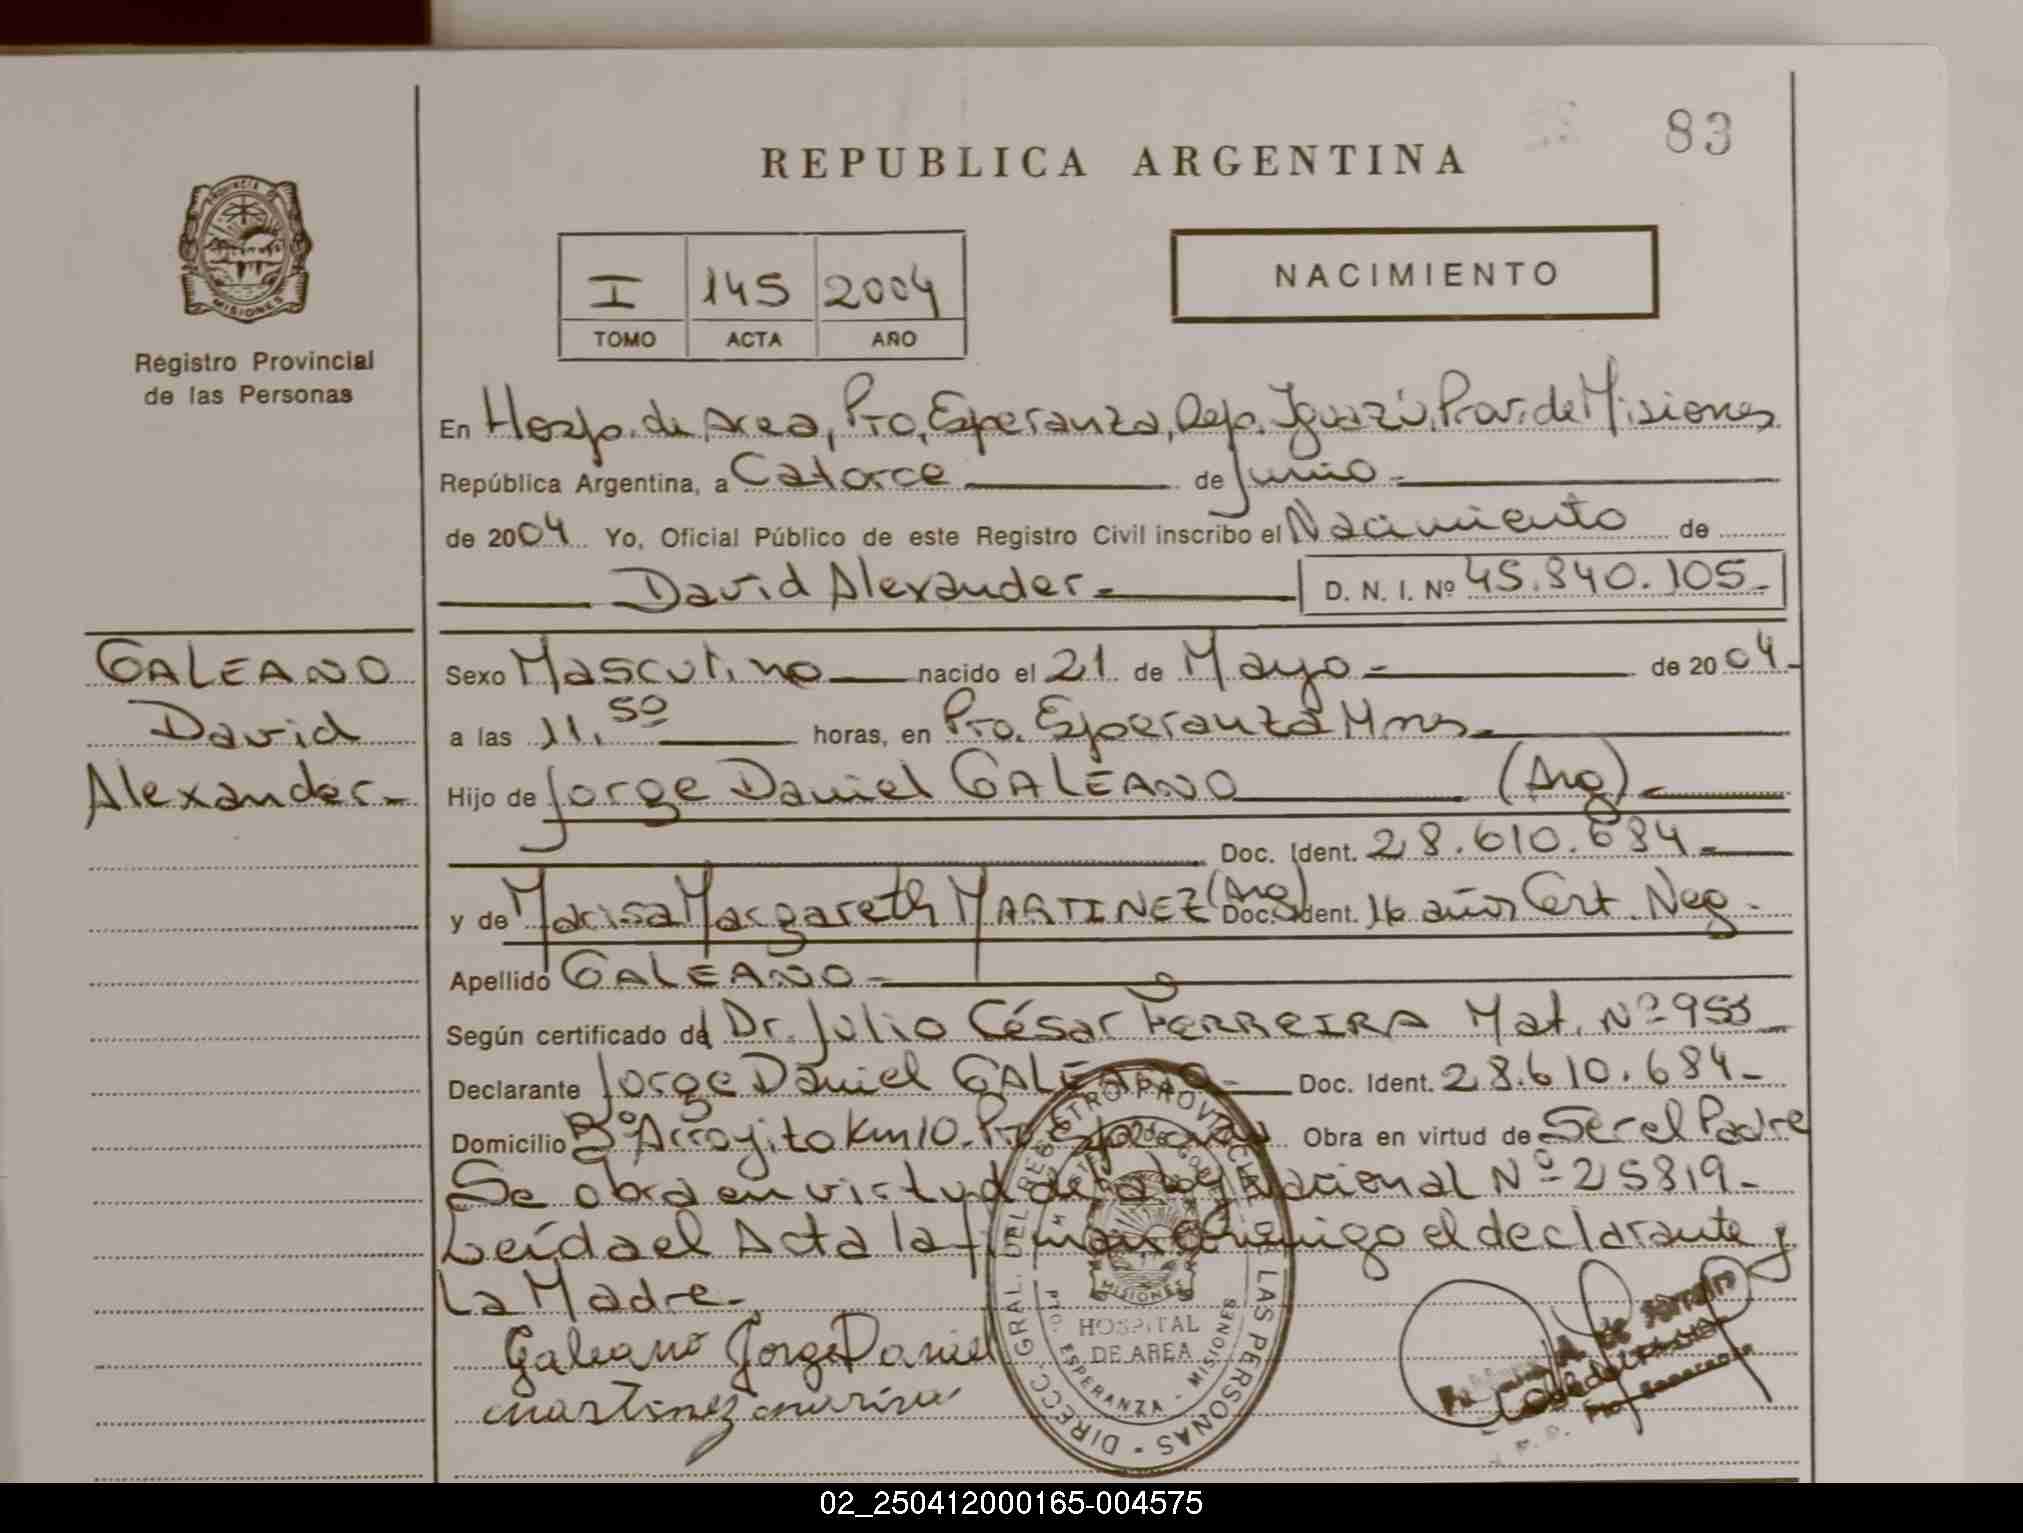 83
REPUBLICA ARGENTINA
PROVINCIA DE
MISIONES
Registro Provincial
de las Personas
I 145 2004
TOMO ACTA AÑO
NACIMIENTO
En Hosp. de Area, Pto. Esperanza, Dep. Iguazú, Prov. de Misiones
República Argentina, a Catorce de Junio
de 2004 Yo, Oficial Público de este Registro Civil inscribo el Nacimiento de
David Alexander.- D. N. I. Nº 45.840.105-
GALEANO
David
Alexander-
Sexo Masculino nacido el 21 de Mayo- de 2004-
a las 11.50 horas, en Pto. Esperanza Mnes-
Hijo de Jorge Daniel GALEANO (Arg)-
Doc. Ident. 28.610.684-
y de Marisa Margareth MARTINEZ (Arg) Doc. Ident. 16 años Cert. Neg-
Apellido GALEANO-
Según certificado del Dr. Julio César FERREIRA Mat. Nº 953
Declarante Jorge Daniel GALEANO- Doc. Ident. 28.610.684-
Domicilio Bº Arroyito Km 10. Pto Esperanza Obra en virtud de Ser el Padre
Se obra en virtud de la Ley Nacional Nº 25819-
Leída el Acta la firman Conmigo el declarante y
La Madre-
Galeano Jorge Daniel
martinez marisa
DIRECC. GRAL. DEL REGISTRO PROVINCIAL DE LAS PERSONAS
MISIONES
HOSPITAL
DE AREA
PTO. ESPERANZA - MISIONES
02_250412000165-004575